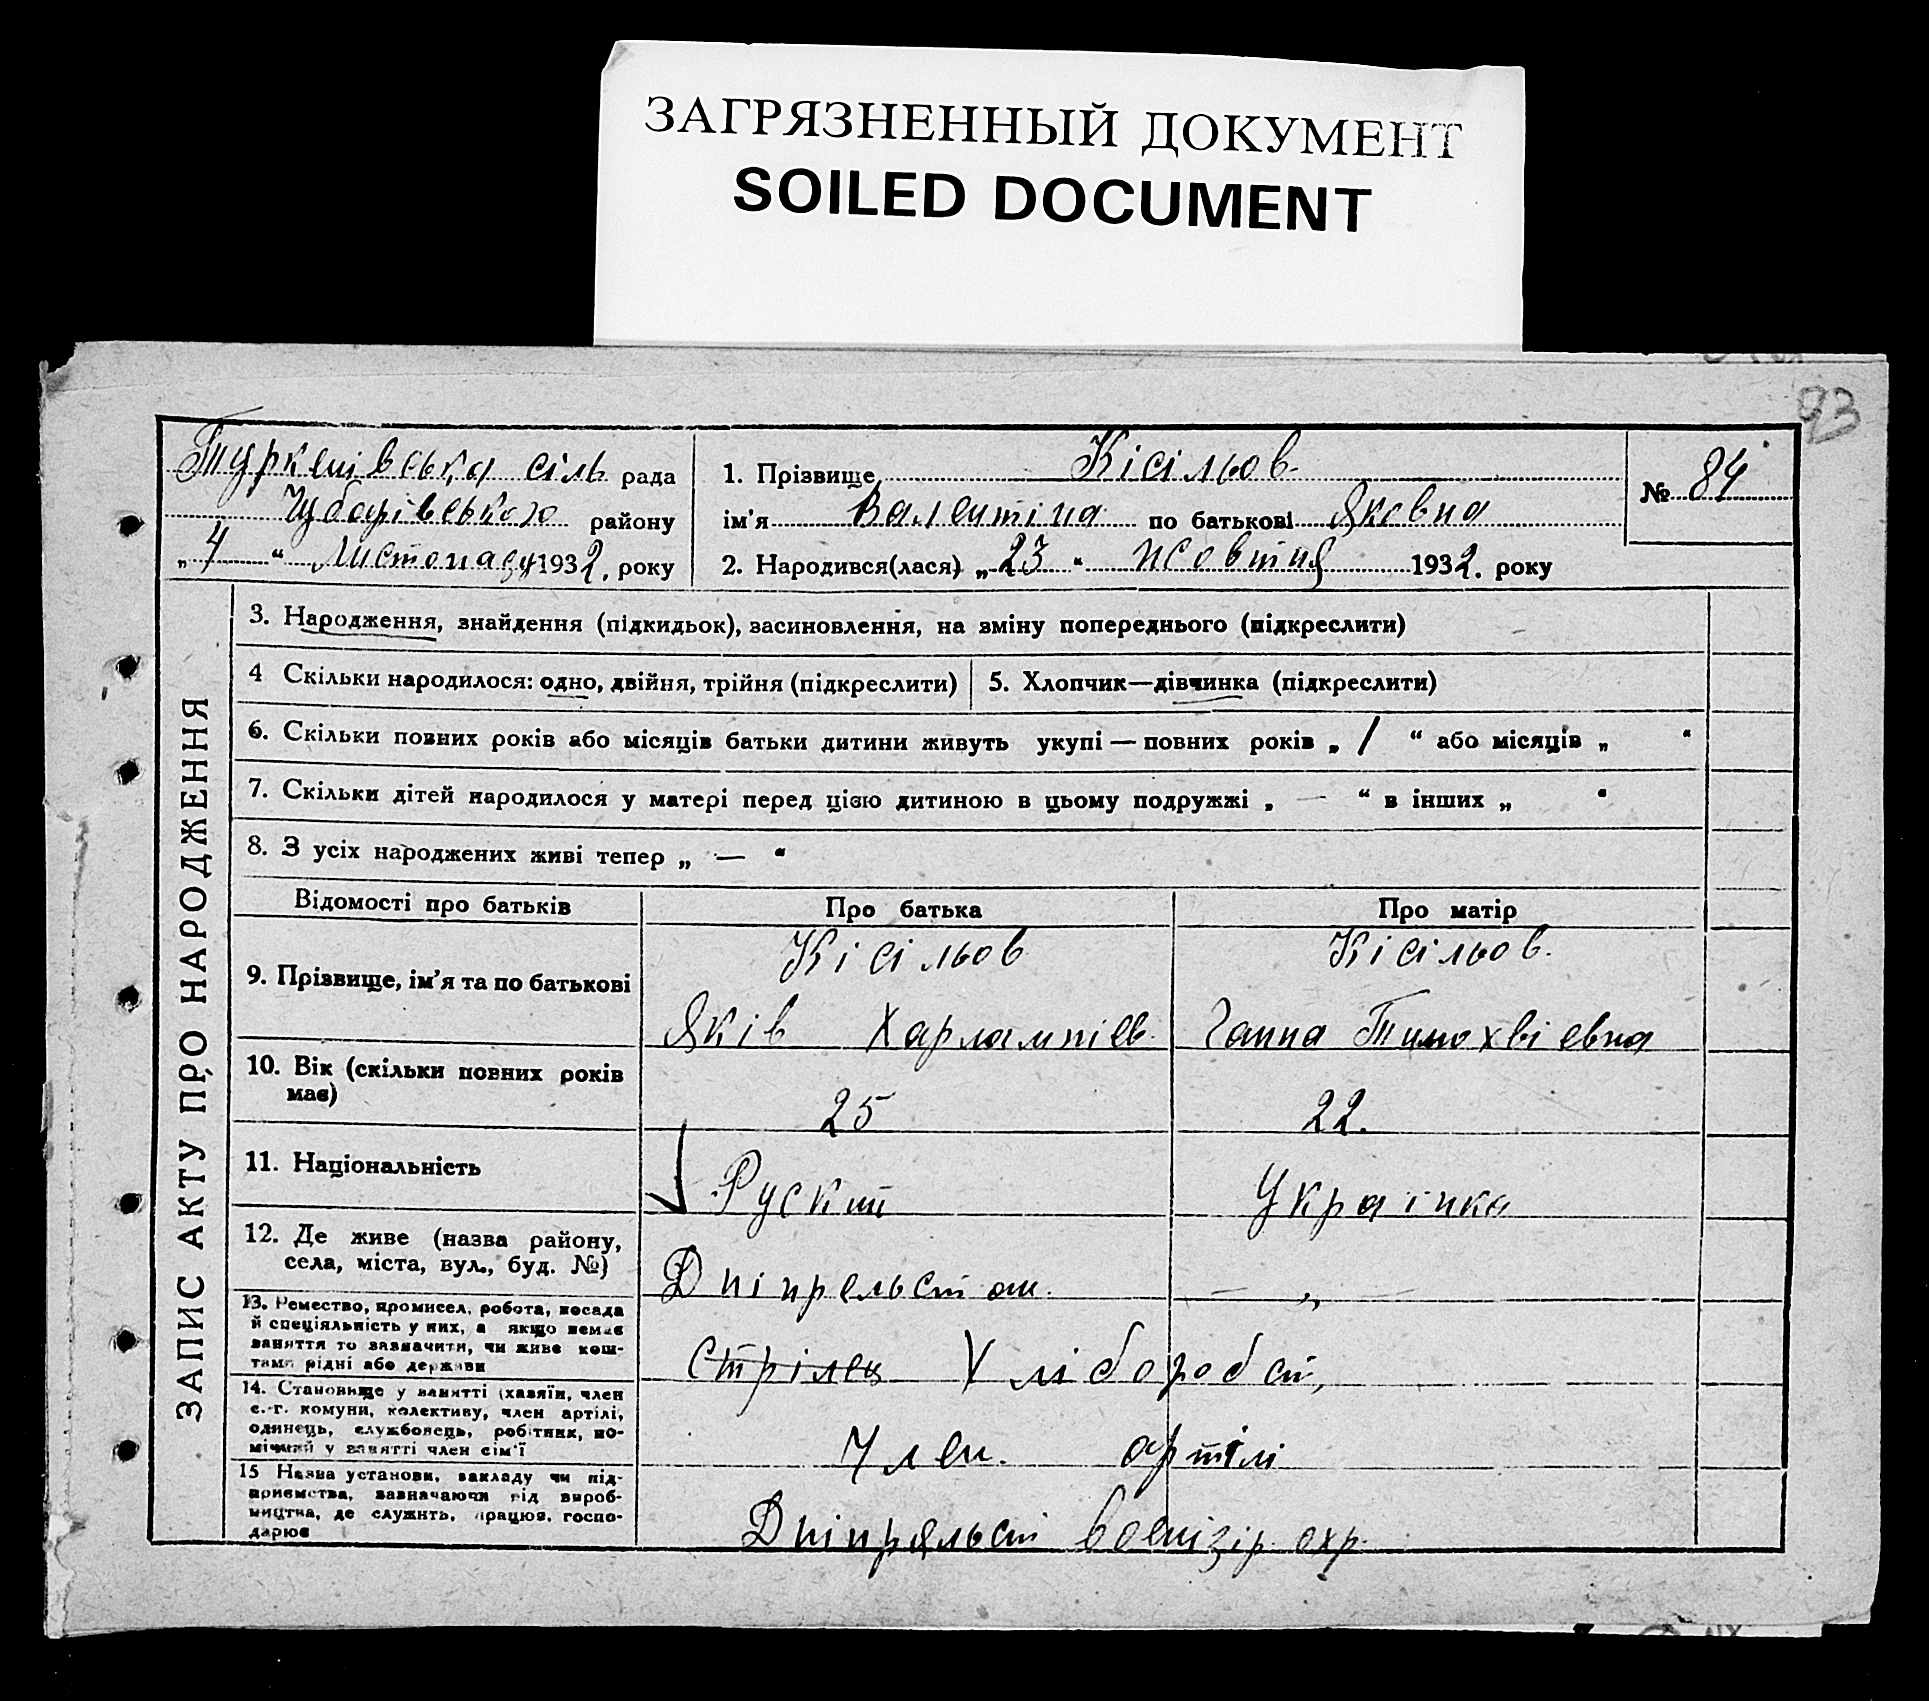 ЗАГРЯЗНЕННЫЙ ДОКУМЕНТ
SOILED DOCUMENT
93
Туркенівська сіль рада
Чубарівського району
„4“ Листопаду 1932. року
1. Прізвище Кісільов
ім'я Валентіна по батькові Яковна
2. Народився(лася) „23“ жовтня 1932. року
№ 84
ЗАПИС АКТУ ПРО НАРОДЖЕННЯ
3. Народження, знайдення (підкидьок), засиновлення, на зміну попереднього (підкреслити)
4 Скільки народилося: одно, двійня, трійня (підкреслити)
5. Хлопчик—дівчинка (підкреслити)
6. Скільки повних років або місяців батьки дитини живуть укупі — повних років „ 1 “ або місяців „ “
7. Скільки дітей народилося у матері перед цією дитиною в цьому подружжі „ — “ в інших „ “
8. З усіх народжених живі тепер „ — “
Відомості про батьків Про батька Про матір
9. Прізвище, ім'я та по батькові
Кісільов Кісільов.
Яків Харлампіев. Ганна Тимохвіевна
10. Вік (скільки повних років має)
25 22.
11. Національність
Руский Украінка
12. Де живе (назва району, села, міста, вул., буд. №)
— „ —
13. Ремество, промисел, робота, посада
й спеціяльність у них, а якщо немає
заняття то зазначити, чи живе кош-
тами рідні або держави
Стрілец Хлібороб
14. Становище у занятті (хазяїн, член
с.-г. комуни, колективу, член артілі,
одинець, службовець, робітник, по-
мічний у занятті член сім'ї
Член. артілі
15 Назва установи, закладу чи під-
приємства, зазначаючи рід вироб-
ництва, де служить, працює, госпо-
дарює
воєнізір. охр.